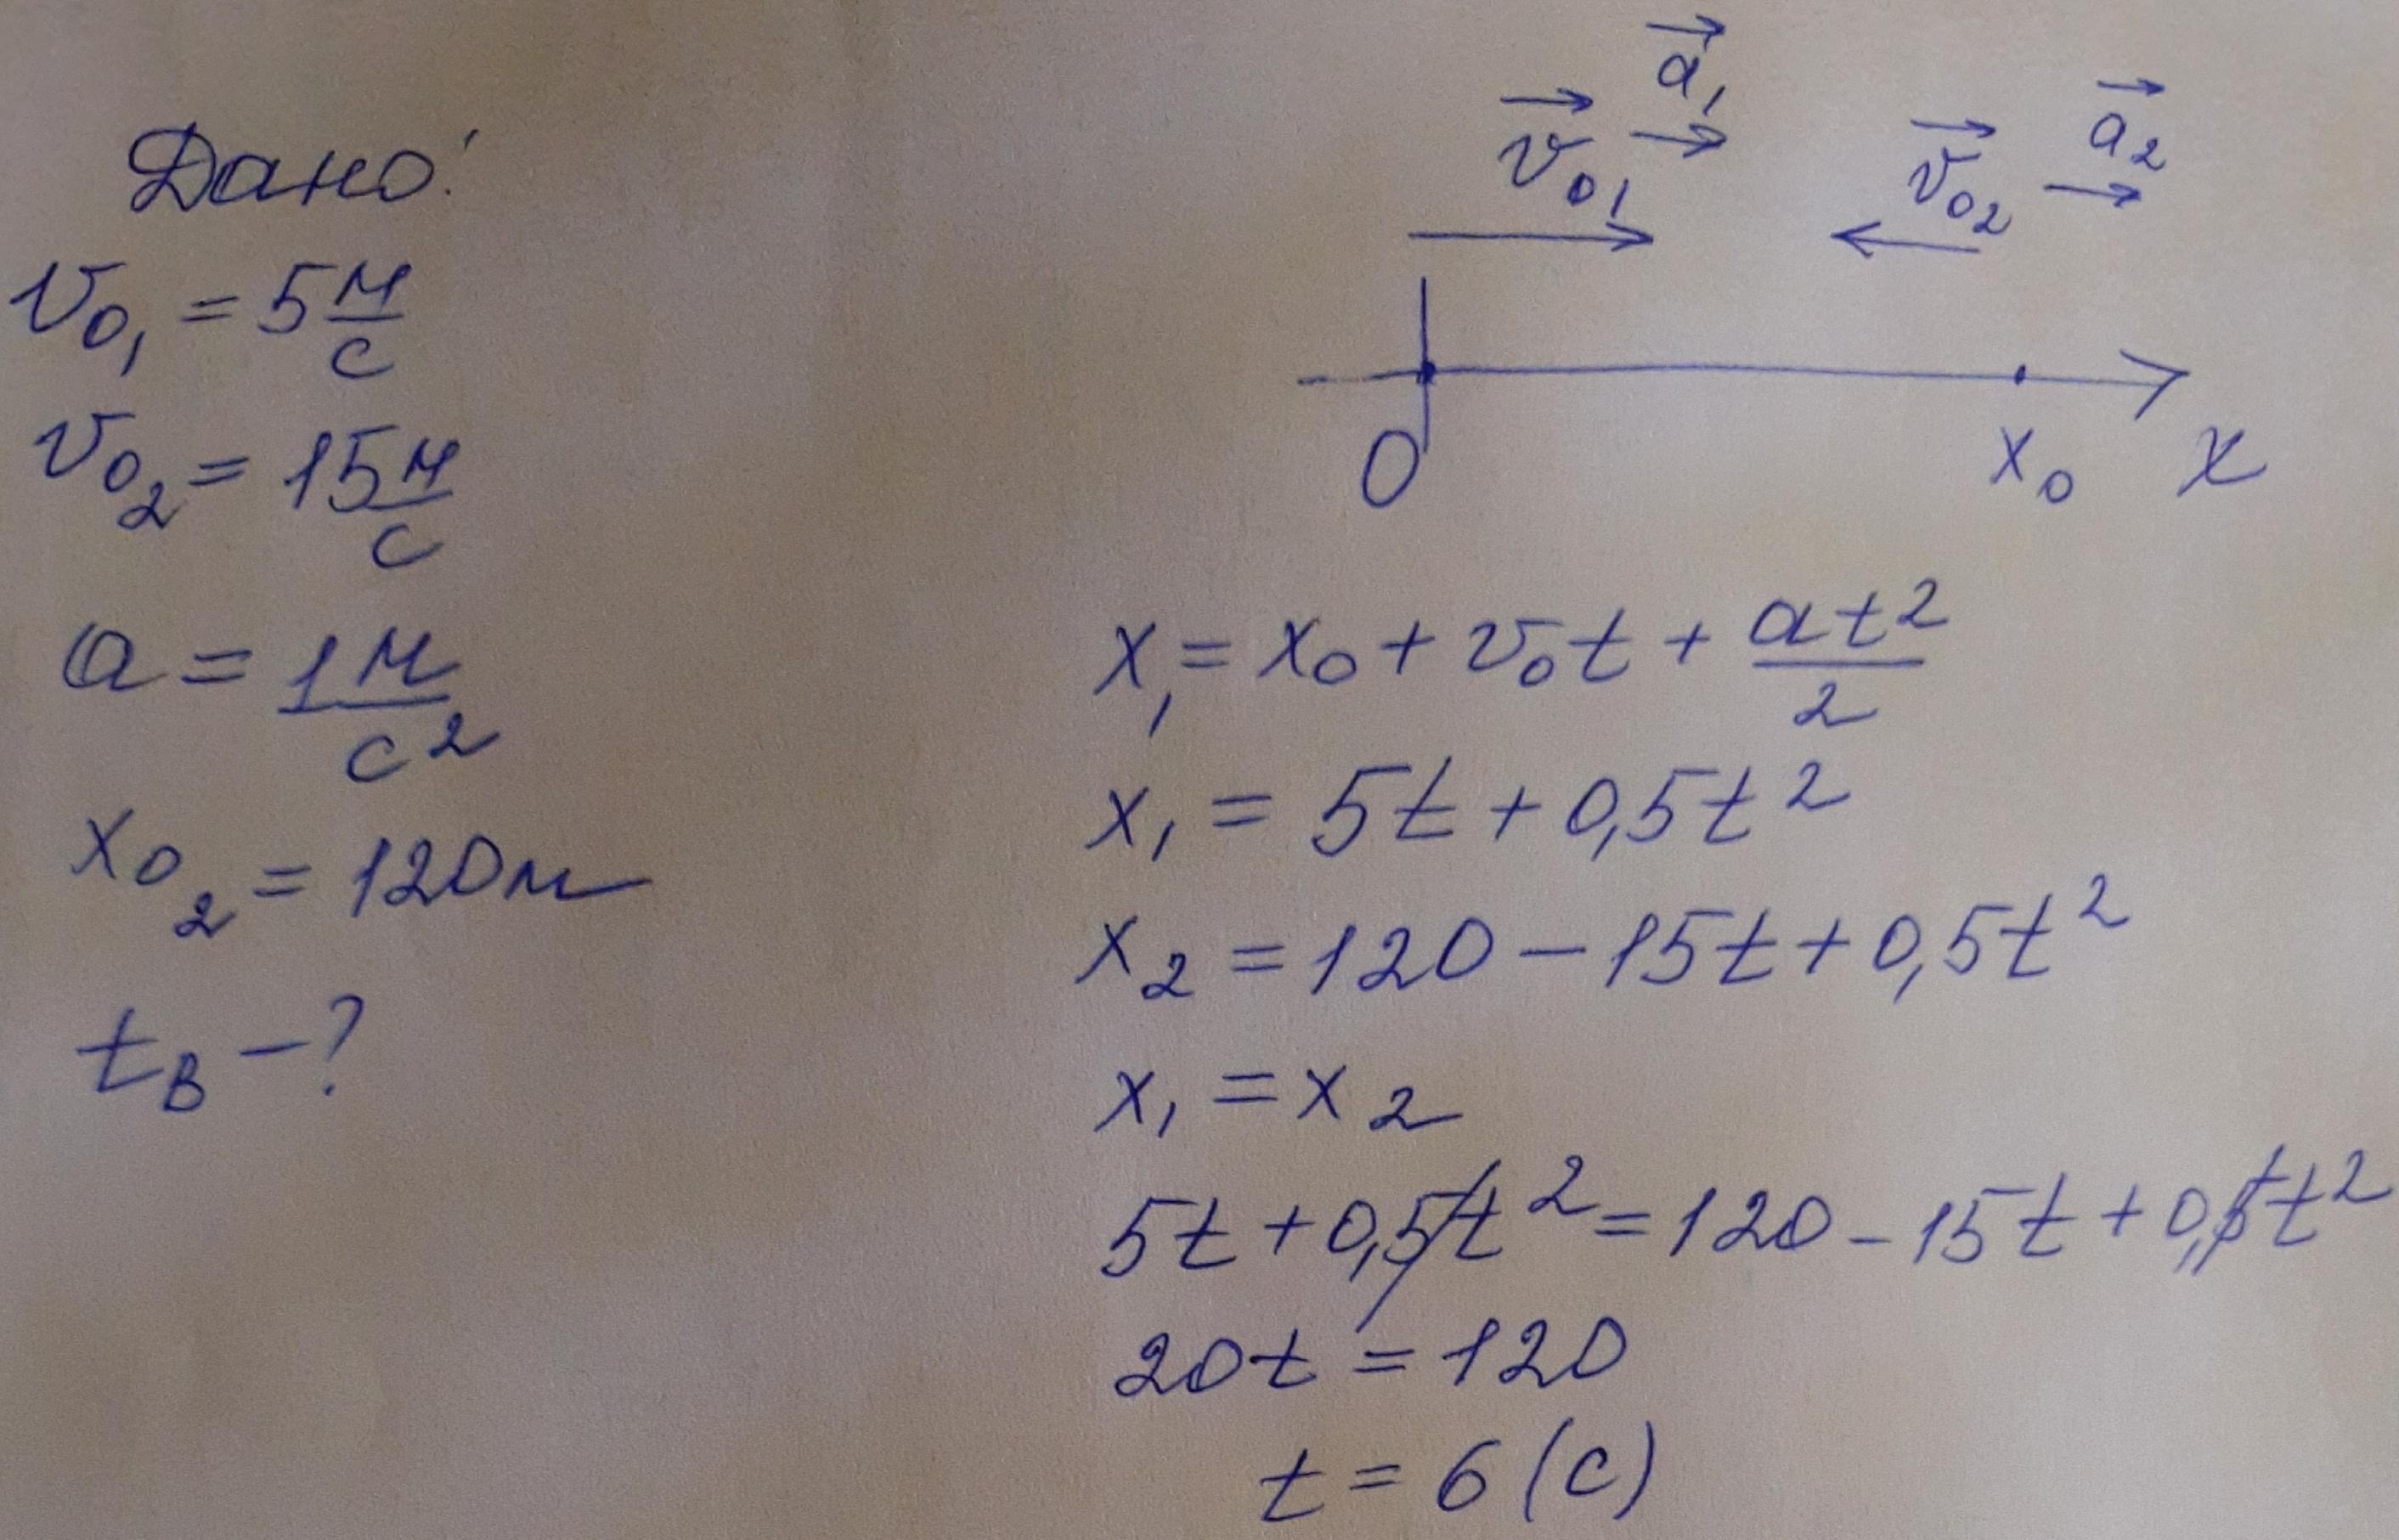 Дано:
v₀₁ = 5 м/с
v₀₂ = 15 м/с
a = 1 м/с²
x₀₂ = 120 м
tв – ?
v⃗₀₁ a⃗₁ v⃗₀₂ a⃗₂
0 x₀ x
x₁ = x₀ + v₀t + at²/2
x₁ = 5t + 0,5t²
x₂ = 120 – 15t + 0,5t²
x₁ = x₂
5t + 0,5t² = 120 – 15t + 0,5t²
20t = 120
t = 6 (с)